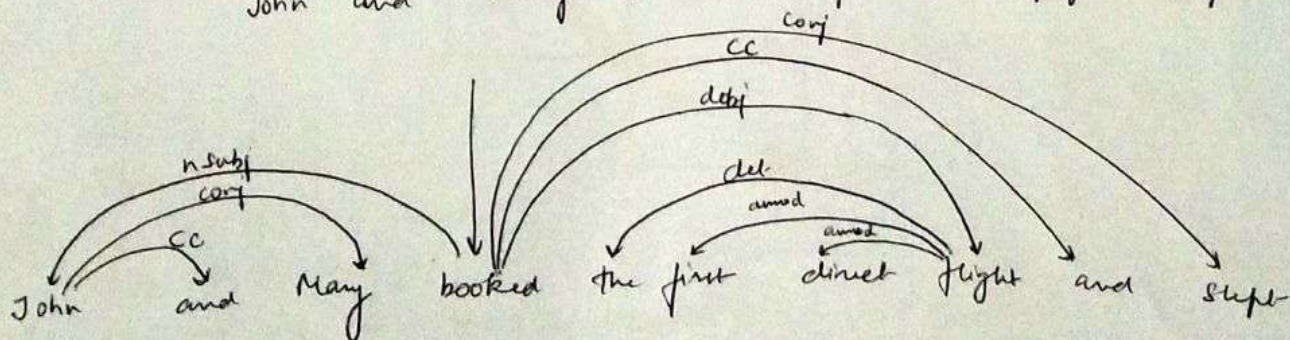 John and
conj
CC
dobj
nsubj
conj
CC
det
amod
amod
John and Mary booked the first direct flight and slept